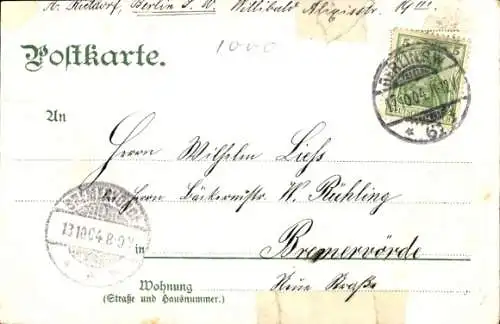 A. Rietdorf, Berlin S. W. Willibald Alexisstr. 14 III.
1000
Postkarte.
5 5
BERLIN S.W.
13.10.04.
* 61
An
Herrn Wilhelm Liess
bei Herrn Bäckermstr. W. Rühling
BREMERVÖRDE
13 10 04. 8-9 V
in Bremervörde
Wohnung Neue Straße
(Straße und Hausnummer.)